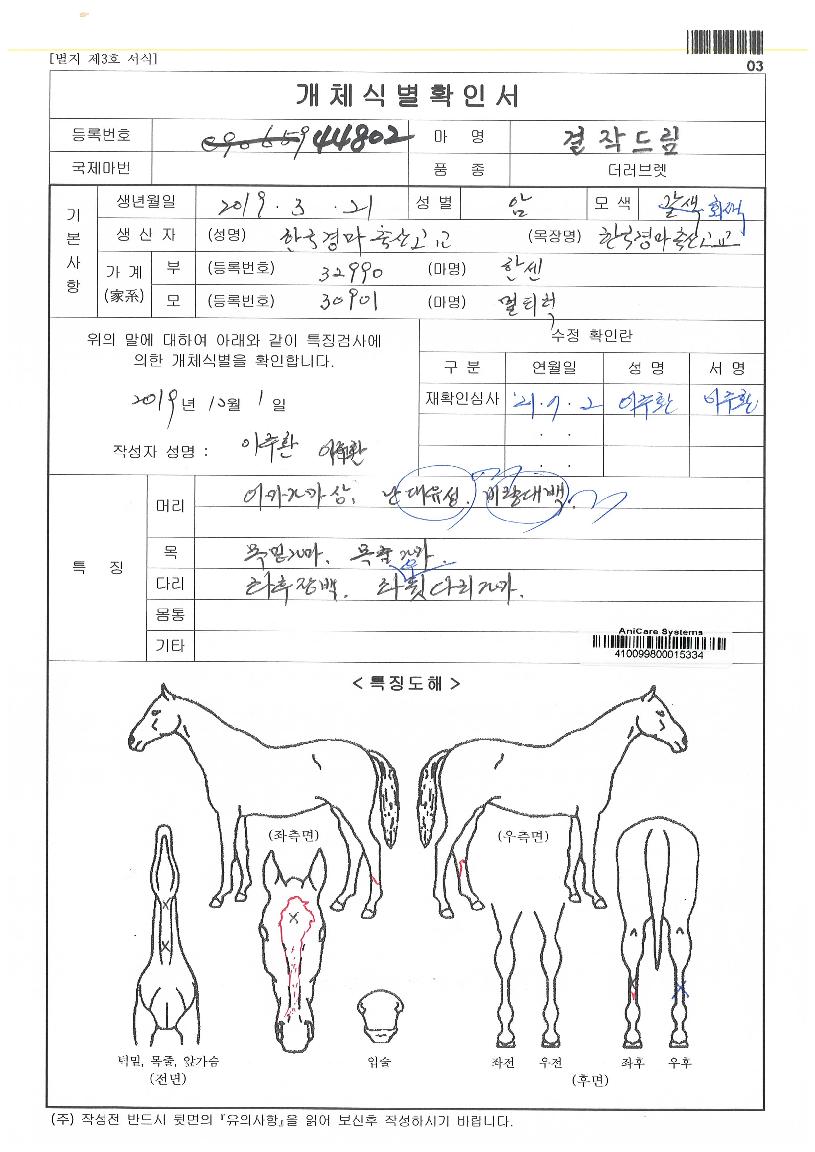 [별지 제3호 서식]
03
개체식별확인서
등록번호 090659 44802 마 명 걸작드림
국제마번 품 종 더러브렛
기본사항
생년월일 2019. 3. 21 성별 암 모색 갈색 회색
생산자 (성명) 한국경마축산고교 (목장명) 한국경마축산고교
가계(家系) 부 (등록번호) 32990 (마명) 한센
모 (등록번호) 30901 (마명) 멀티럭
위의 말에 대하여 아래와 같이 특징검사에
의한 개체식별을 확인합니다.
2019년 10월 1일
작성자 성명 : 이주환 이주환
수정 확인란
구 분 연월일 성 명 서 명
재확인심사 '21. 7. 2 이주환 이주환
. .
. .
특 징
머리 대유성, 비량대백
목 목밑가마, 목줄가마.
다리 좌후장백. 좌 우 뒷다리가마.
몸통
기타
AniCare Systems
410099800015334
< 특징도해 >
(좌측면) (우측면)
턱밑, 목줄, 앞가슴
(전면)
입술
좌전 우전 좌후 우후
(후면)
(주) 작성전 반드시 뒷면의 『유의사항』을 읽어 보신후 작성하시기 바랍니다.